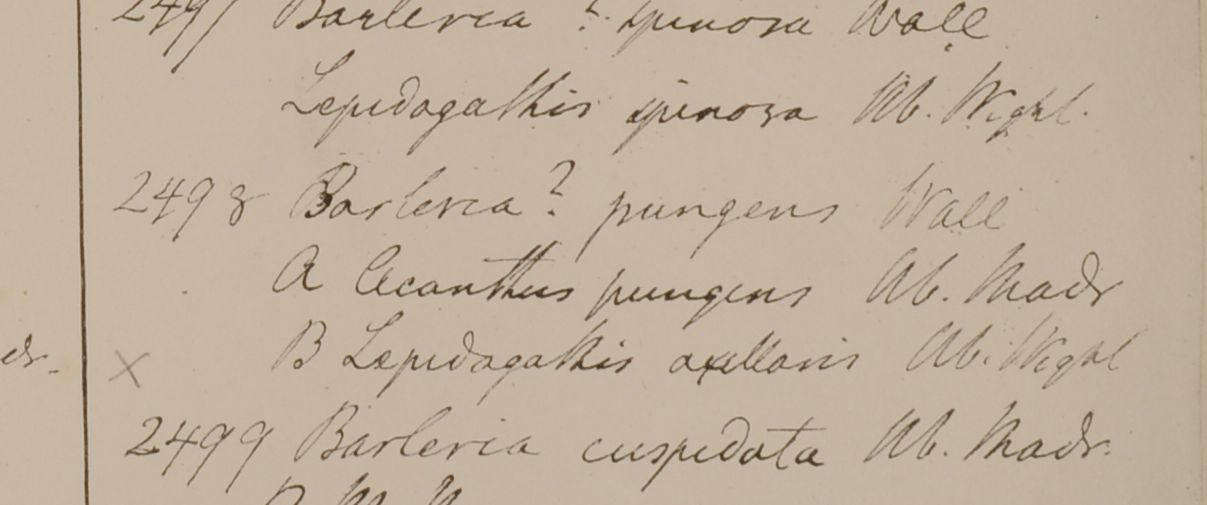 2497 Barleria ? spinosa Wall
Lepidagathis spinosa Hb. Wight.
2498 Barleria? pungens Wall
A Acanthus pungens Hb. Madr
B Lepidagathis axillaris Hb. Wight
dr.
X
2499 Barleria cuspidata Hb. Madr.